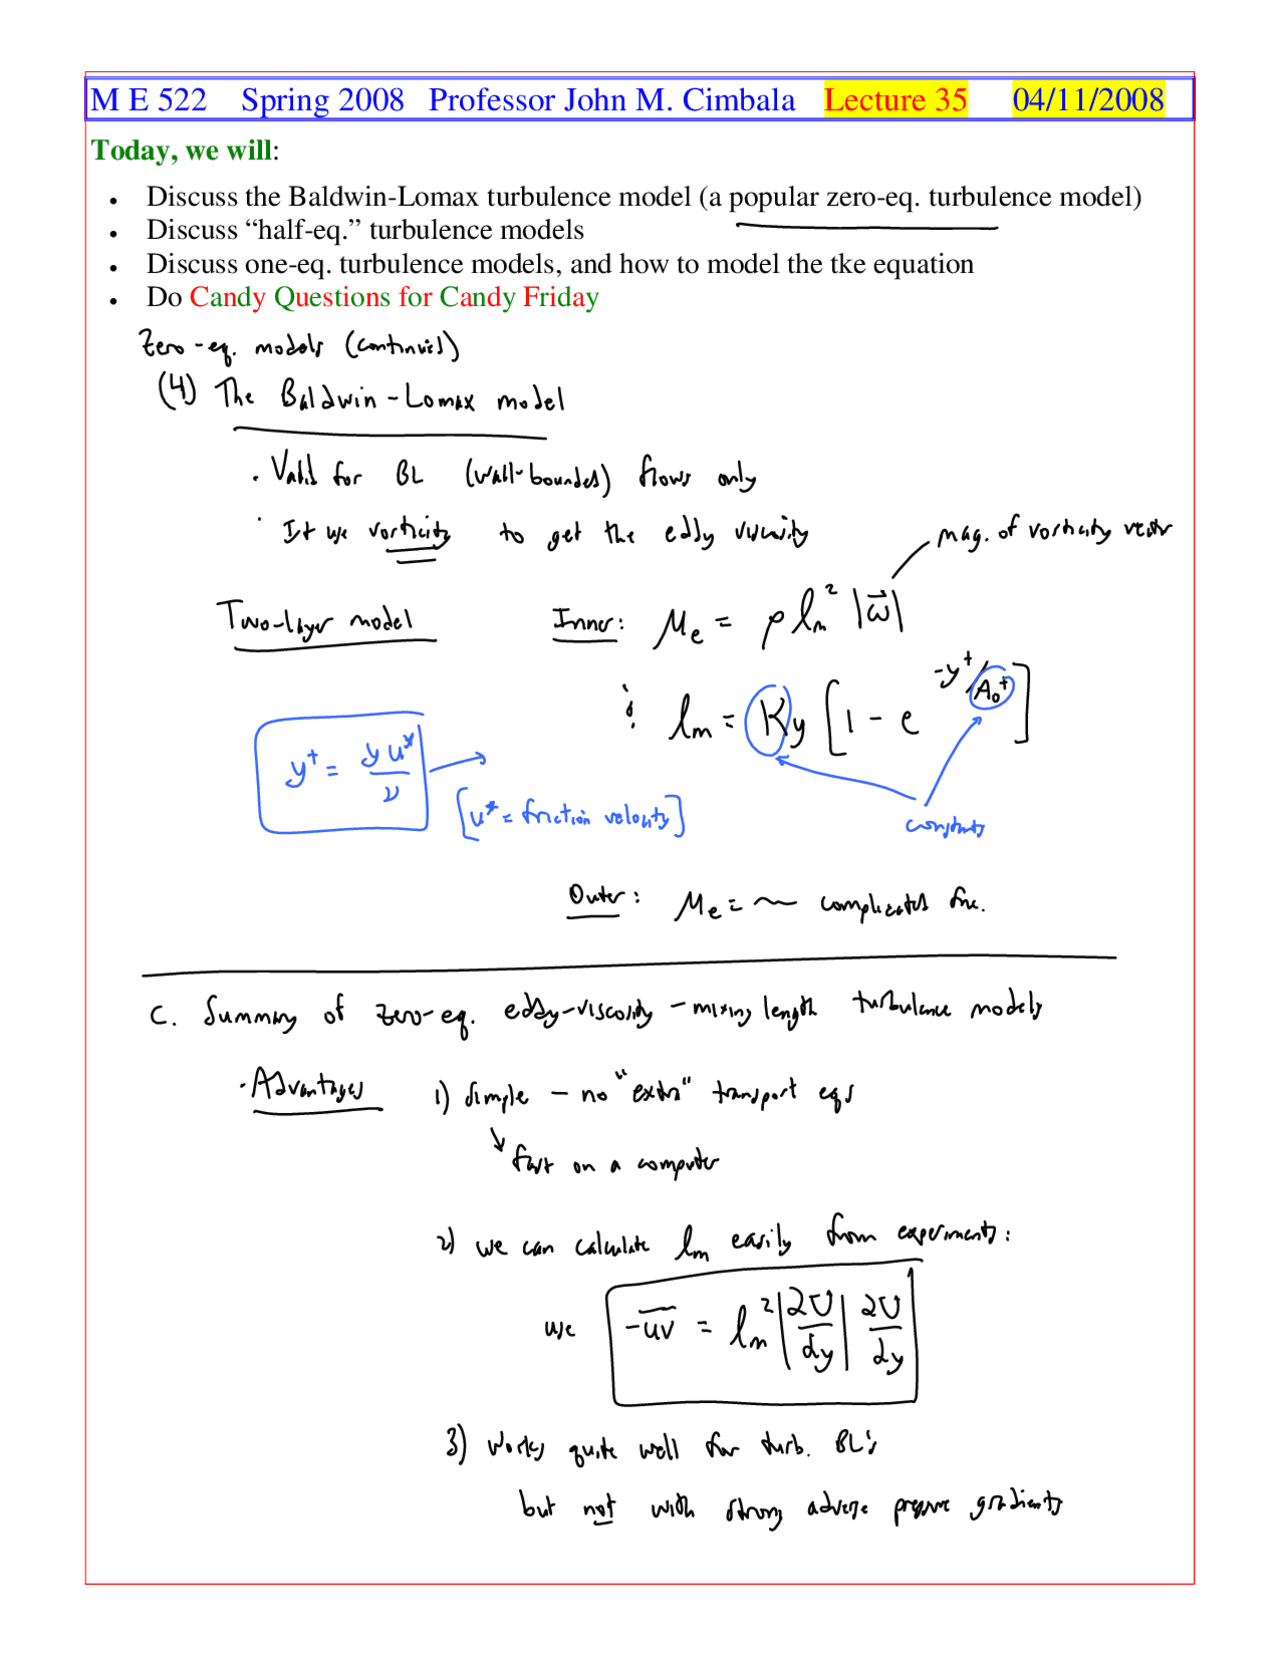 M E 522 Spring 2008 Professor John M. Cimbala Lecture 35 04/11/2008
Today, we will:
• Discuss the Baldwin-Lomax turbulence model (a popular zero-eq. turbulence model)
• Discuss “half-eq.” turbulence models
• Discuss one-eq. turbulence models, and how to model the tke equation
• Do Candy Questions for Candy Friday
Zero-eq. models (continued)
(4) The Baldwin-Lomax model
• Valid for BL (wall-bounded) flows only
• It use vorticity to get the eddy viscosity
mag. of vorticity vector
Two-layer model Inner: μₑ = ρ lₘ² |ω⃗|
; lₘ = Ky [1 - e^(-y⁺/A₀⁺)]
y⁺ = y u*/ν
[u* = friction velocity]
constants
Outer: μₑ = ~ complicated fnc.
C. Summary of zero-eq. eddy-viscosity - mixing length turbulence models
• Advantages 1) Simple - no "extra" transport eqs
↘ fast on a computer
2) we can calculate lₘ easily from experiments:
use -u̅v̅ = lₘ² |∂U/∂y| ∂U/∂y
3) Works quite well for turb. BL's
but not with strong adverse pressure gradients